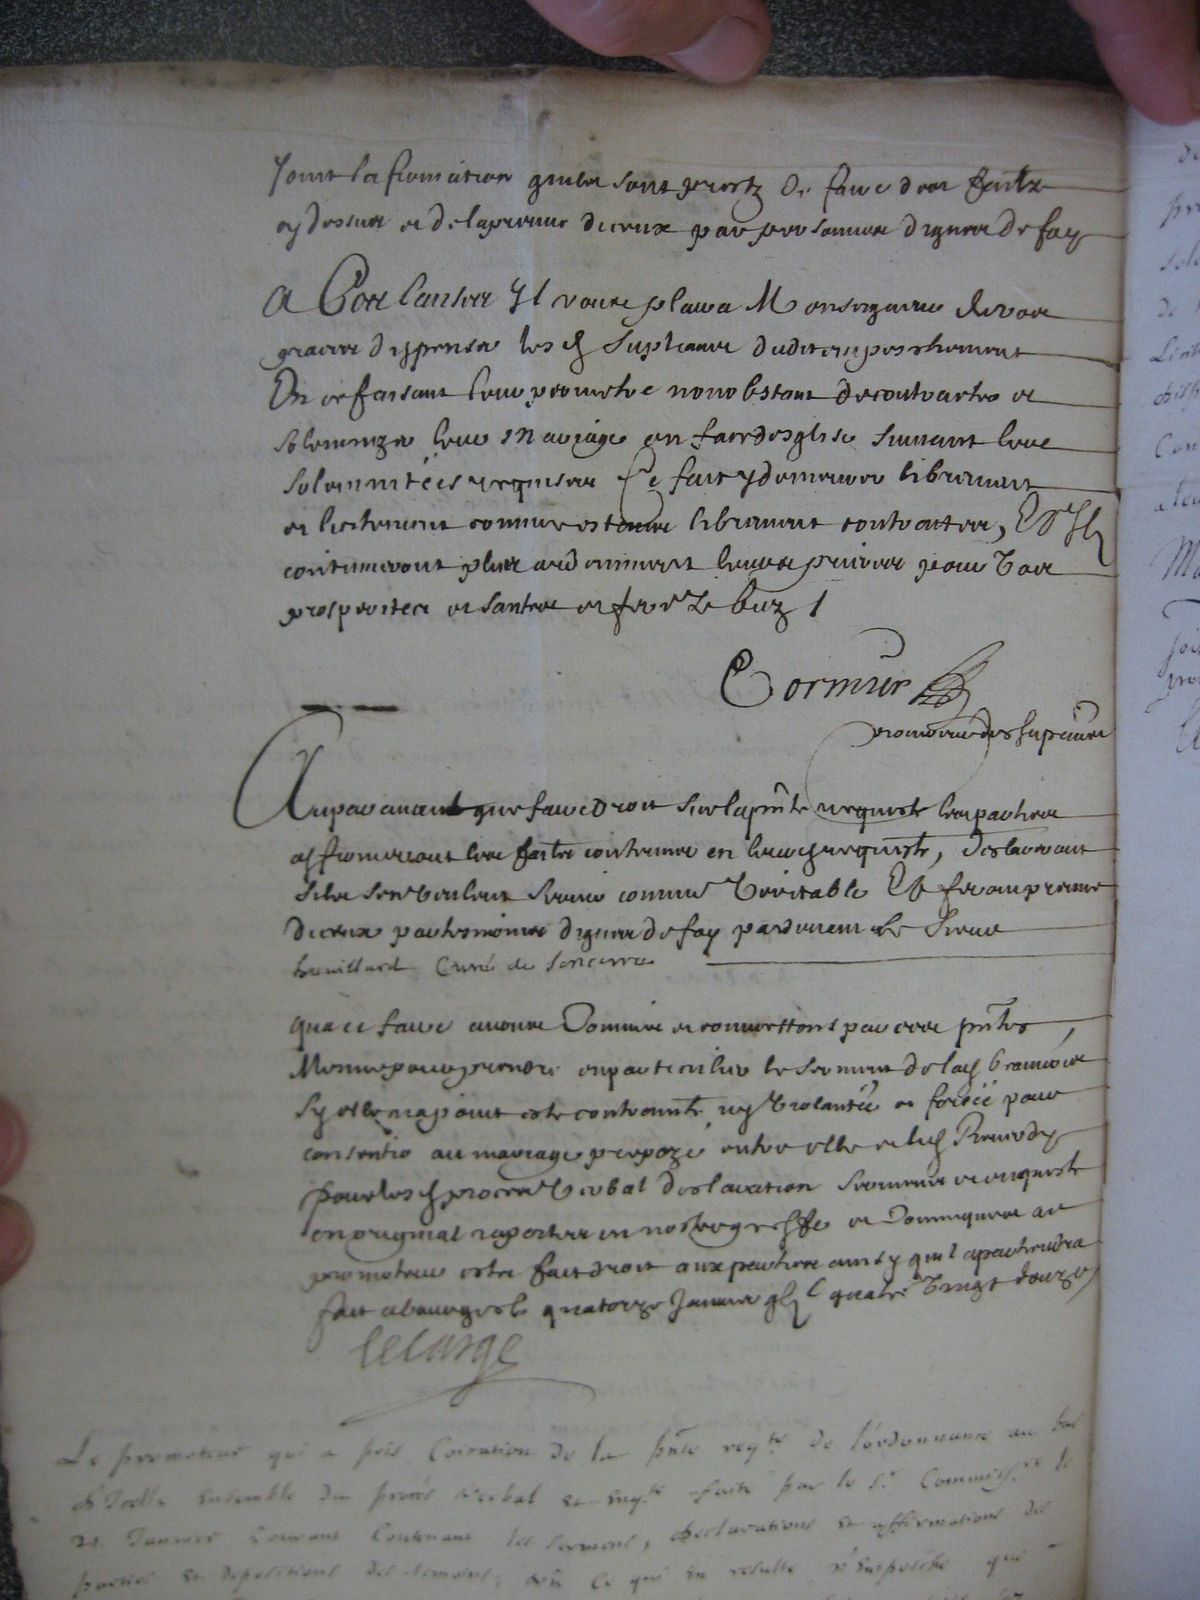 Joint laffirmation quilz sont prestz de faire des faitz
cy dessus et de la preuve diceux par personnes dignes de foy
A Ces Causes Il vous plaira Monseigneur de vos
graces dispenser lesd suplians dudit empeschement
En ce faisant leur permettre nonobstant de contracter et
solemnizer leur mariage en face desglise suivant leur
solemnitées requises Ce fait y demeurer librement
et licitement comme estans librement contractez, Et Ilz
continueront plus ardemment leurs prieres pour vos
prosperitez et santez et ferez bien /
Cormier
procureur des supliants
Auparavant que faire droit sur la pnte requeste les parties
affirmeront les faitz contenus en leurd requeste, declareront
silz sen veulent servir comme veritable Et feront preuve
diceux par tesmoins dignes de foy pardevant le sieur
thuillard Curé de Sancerre
qua ce faire avons Commis et commettons par ces pntes,
Mesme pour prendre en particulier le serment de lad
sy elle na point esté contrainte ny violantée et forcée pour
consentir au mariage propozé entre elle et led
pour lesd proces verbal declaration serment et enqueste
en original raportez en nostre greffe et Communiquez au
promoteur estre fait droit aux parties ainsy quil apartiendra
fait a bourges le quatorze Janvier gbic quatre vingt douze /
lelarge
Le promoteur qui a pris Coication de la pnte reqte de l'ordonnance au bas
d'Icelle Ensemble du procés verbal et Enqte faite par le Sr Commissre le
21. Janvier Courant Contenant les sermens, declarations et affirmations des
parties et depositions des temoins, vû ce qui en resulte n'Empesche que